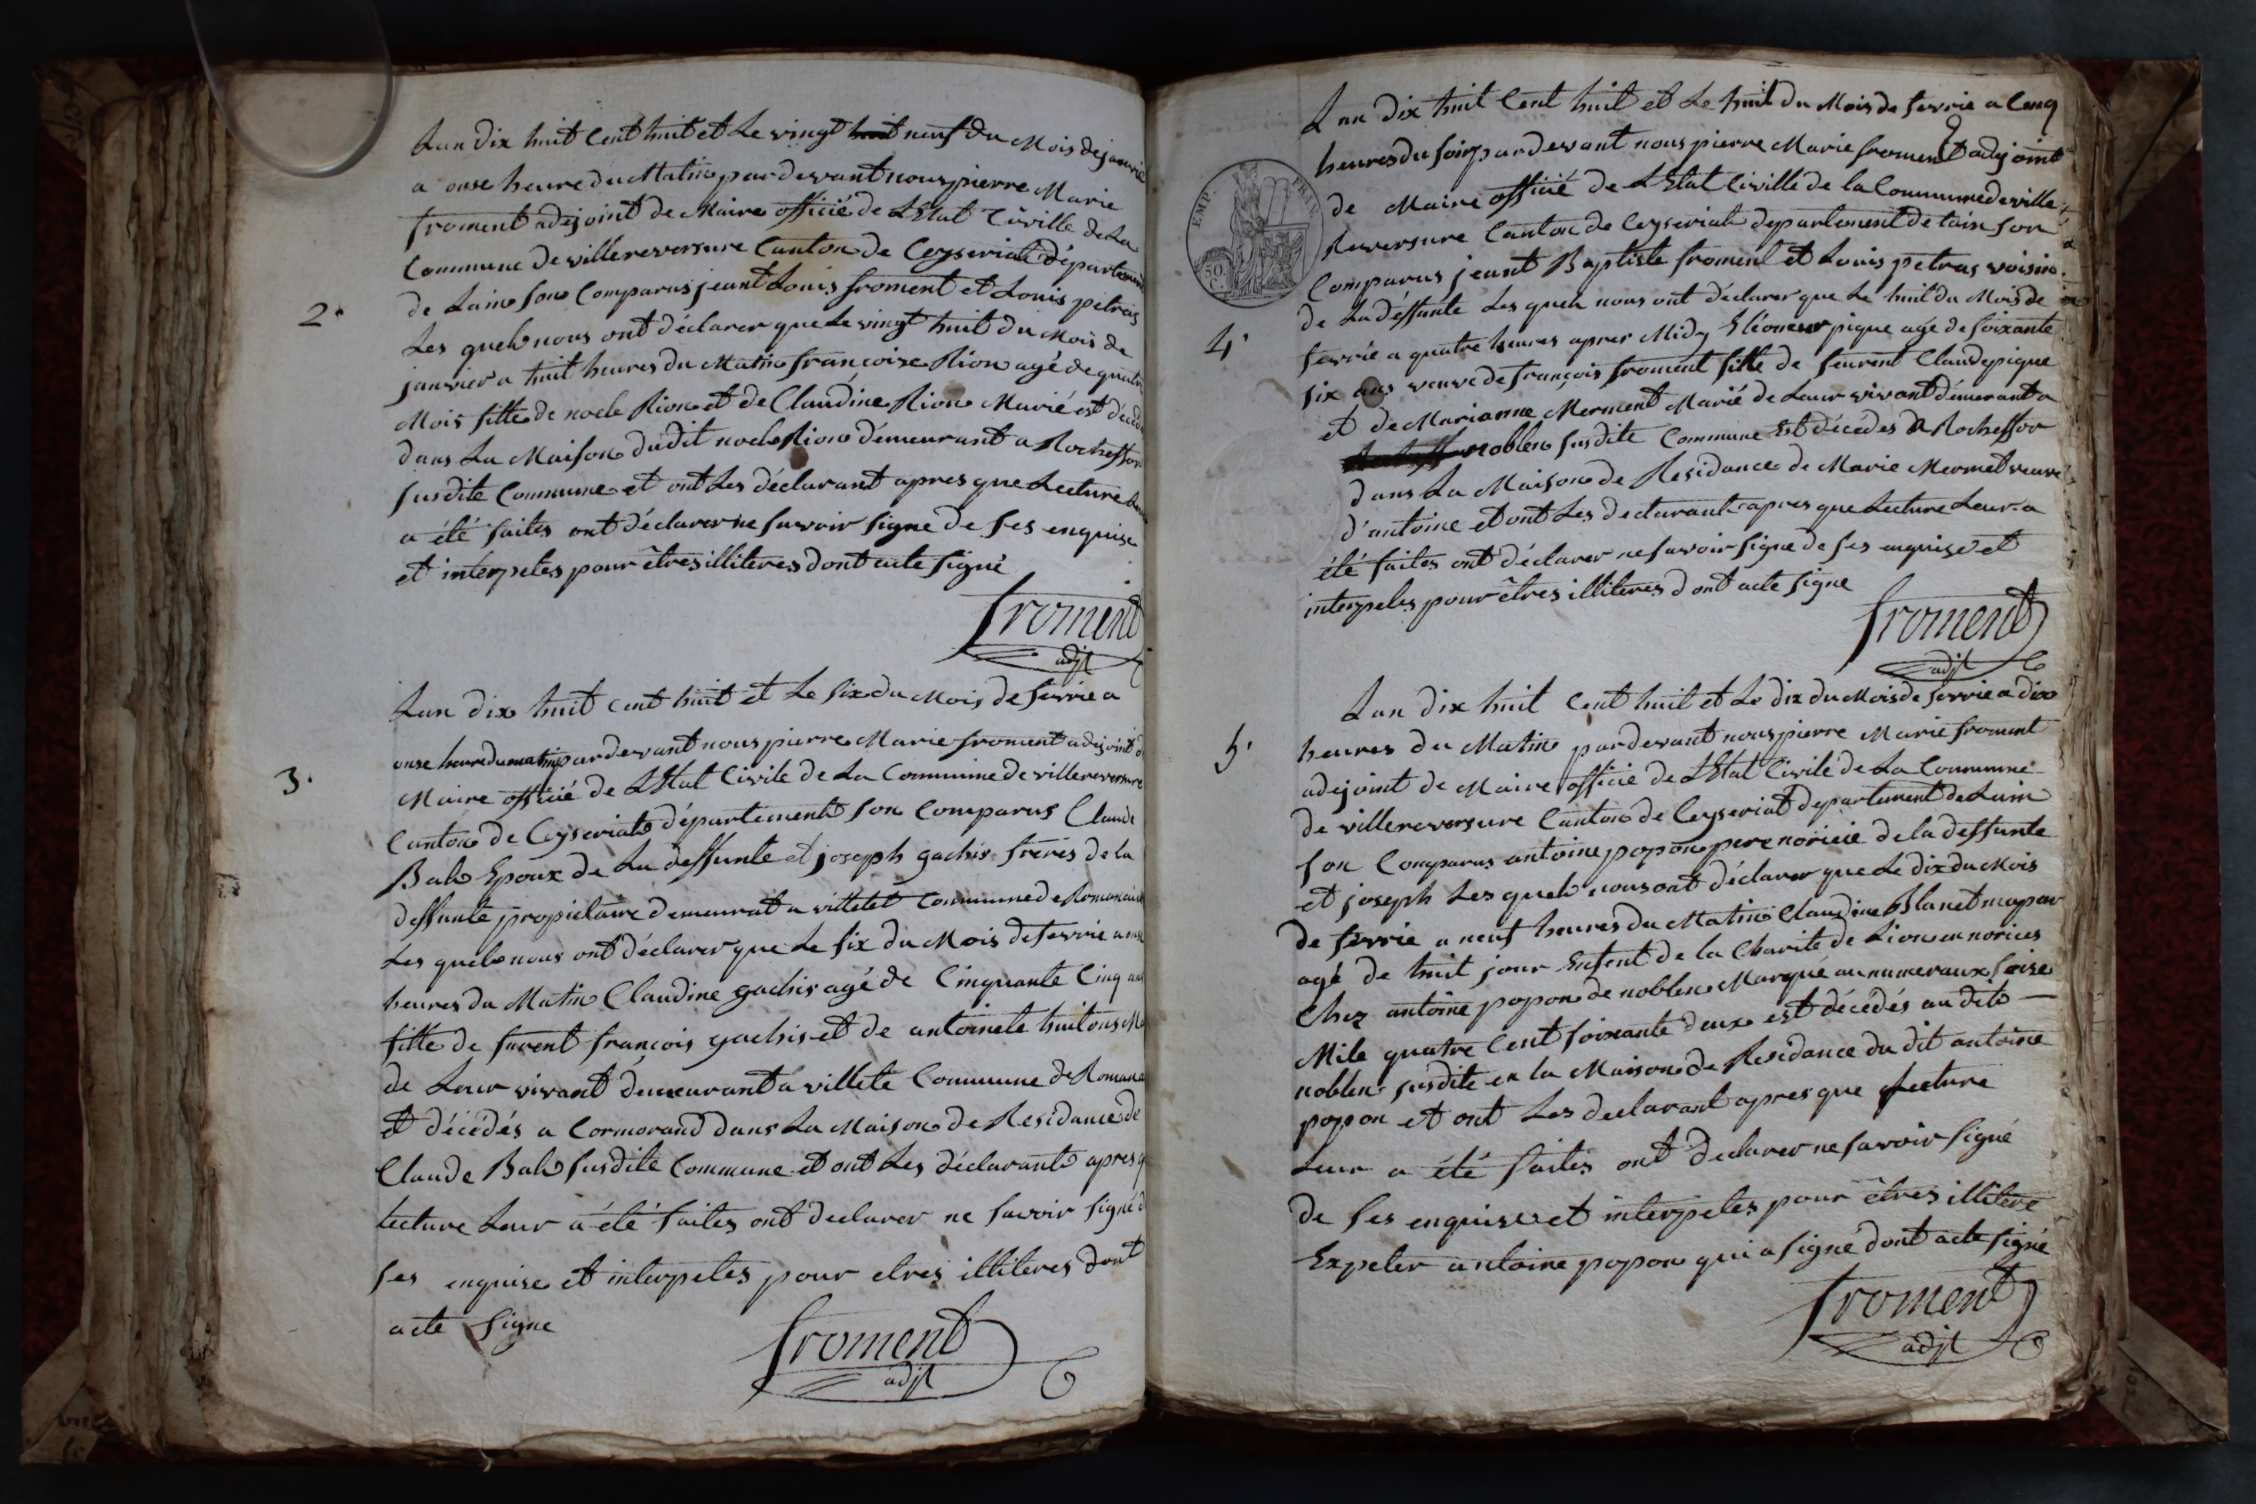 Lan dix huit Cent huit et Le vingt huit neuf du Mois de janvié
a onse heure du Matin par devant nous pierre Marie
froment adejoint de Maire officié de LEtat Civille de La
Commune de villereversure Canton de Ceyseriat département
de Lain son Comparus jeant Louis froment et Louis petras
2.
Les quels nous ont déclarer que Le vingt huit du Mois de
janvier a huit heures du Matin francoise Rion agé de quatre
Mois fille de noele Rion et de Claudine Rion Marié est décédé
dans La Maison dudit noele Rion démeurant a Rocheffor
susdite Commune et ont Les déclarant apres que Lecture Leur
a été faites ont déclarer ne savoir signe de ses enquise
et interpeles pour êtres illiteres dont acte signé
froment
adjt
Lan dix huit cent huit et Le six du Mois de fevrie a
onse heure du matin par devant nous pierre Marie froment adejoint d
3.
Maire officié de LEtat Civile de La Commune de villereversure
Canton de Ceyseriat département son Comparus Claude
Bal Epoux de La deffunte et joseph gachis frères de la
deffunte propietaire demeurat a villetet Commune de Romanau
Les quels nous ont déclarer que Le six du Mois de fevrie a
heures du Matin Claudine gachis agé de Cinquante Cinq ans
fille de furent françois gachis et de antoinete huitons
de Leur vivant démeurant a villete Commune de Romana
et décédés a Cormorand dans La Maison de Residance de
Claude Bal susdite Commune et ont Les déclarants apres q
Lecture Leur a été faites ont declarer ne savoir signé d
ses enquise et interpeles pour etres illiteres dont
acte signe
froment
adjt
Lan dix huit Cent huit et Le huit du Mois de fevrie a Cinq
heures du soir par devant nous pierre Marie froment adejoint
EMP. FRAN.
50. C.
de Maire officié de LEtat Civille de la Commune de ville
Reversure Canton de Ceyseriat departement de lain son
Comparus jeant Baptiste froment et Louis petras voisin
de La déffunte Les quels nous ont déclarer que Le huit du Mois de
4.
fevrié a quatre heures apres Midy Eléoneur pique agé de soixante
six ans veuve de françois froment fille de feurent Claude pique
et de Marianne Merment Marié de Leur vivant démeurant a
noblens susdite Commune Est décédés a Rocheffor
dans La Maison de Residance de Marie Mermet veuve
d'antoine et ont Les declarants apres que Lecture Leur a
été faites ont déclarer ne savoir signe de ses enquise et
interpeles pour êtres illiteres dont acte signe
froment
adjt
Lan dix huit Cent huit et Le dix du Mois de fevrie a dix
5.
heures du Matin par devant nous pierre Marie froment
adejoint de Maire officié de LEtat Civile de La Commune
de villereversure Canton de Ceyseriat departement de Lain
son Comparus antoine popon pere noricié de la deffunte
et joseph Les quels nous ont déclarer que Le dix du Mois
de fevrie a neuf heures du Matin Claudine Blanet
agé de huit jour Enfent de la Charite de Lion en norices
Chez antoine popon de noblens Marqué au numeraux seise
Mile quatre Cent soixante deux est décédés au dit
noblens susdite en la Maison de Residance du dit antoine
popon et ont Les declarant apres que Lecture
Leur a été faites ont declarer ne savoir signé
de ses enquise et interpeles pour êtres illitere
Expeter antoine popon qui a signé dont acte signé
froment
adjt